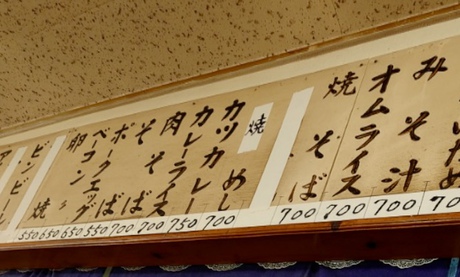 いため
みそ汁
オムライス
焼そば
焼
カツカレー
カレーライス
肉
ベーコンエッグ
卵焼
ビンビール
550 650 650 550 700 700 750 700 700 700 700 70